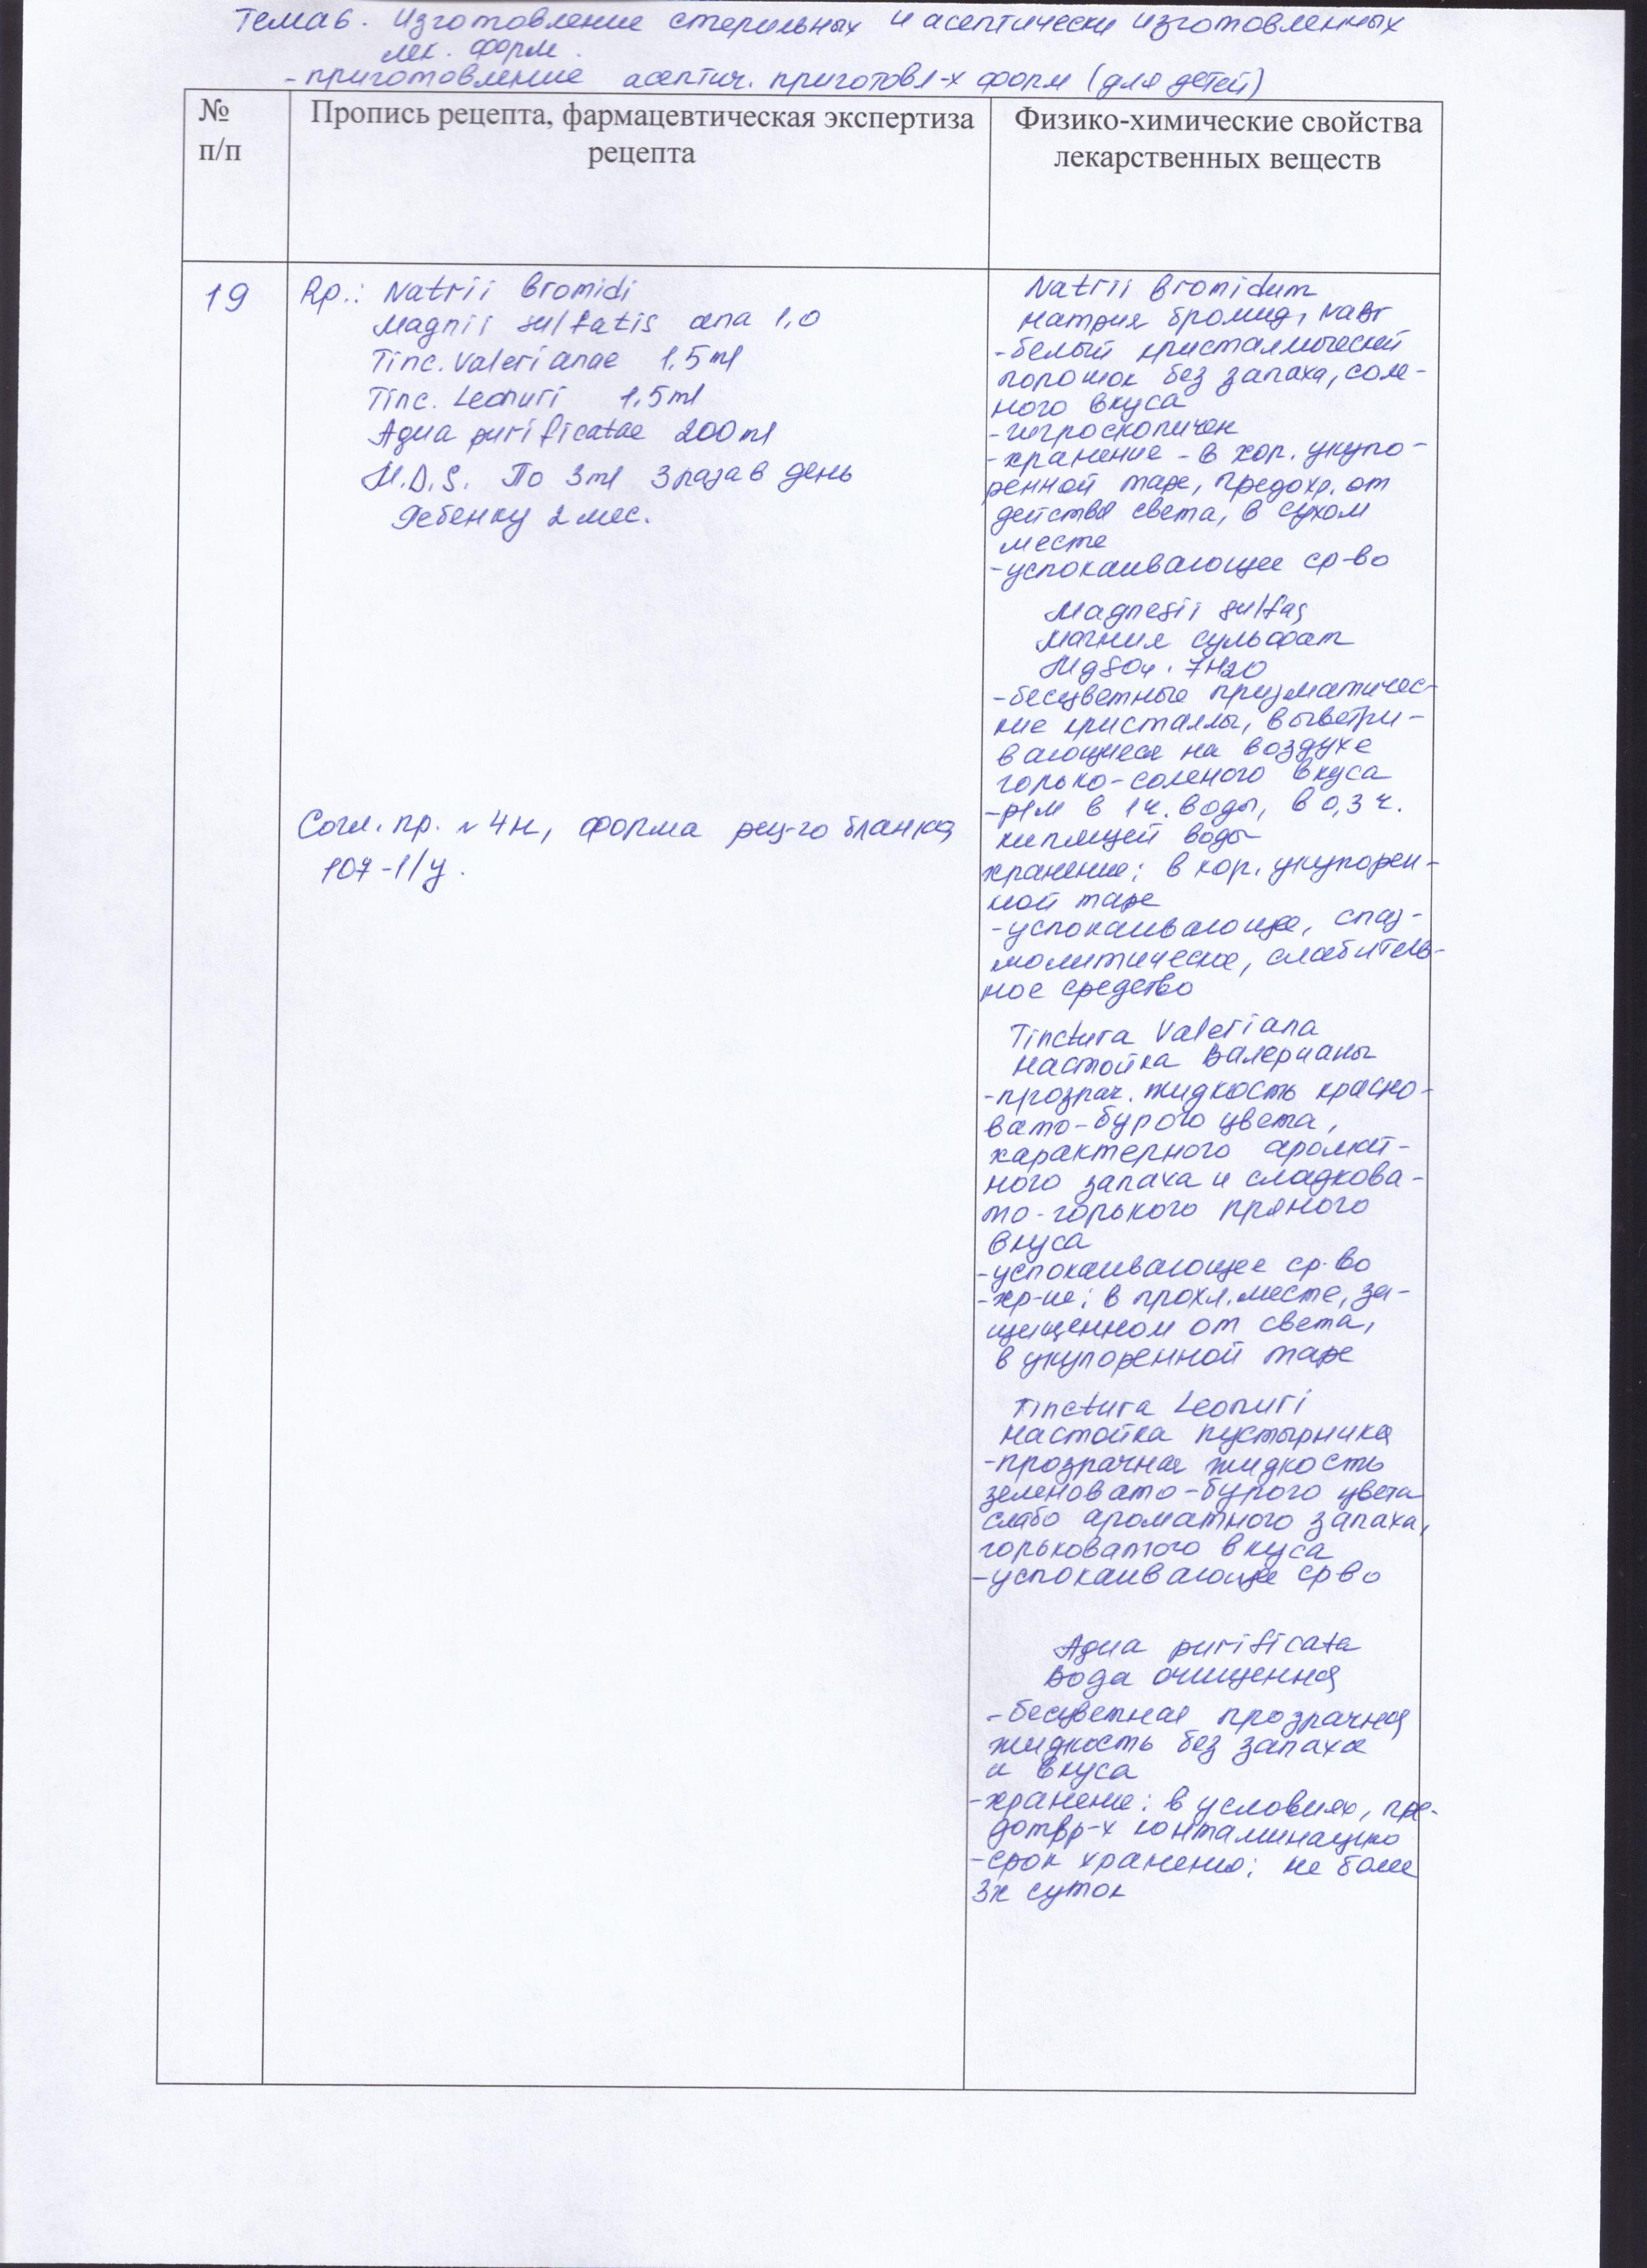 Тема 6. Изготовление стерильных и асептически изготовленных
лек. форм.
- приготовление асептич. приготовл-х форм (для детей)
№
п/п
Пропись рецепта, фармацевтическая экспертиза
рецепта
Физико-химические свойства
лекарственных веществ
19
Rp.: Natrii bromidi
Magnii sulfatis ana 1,0
Tinc. Valerianae 1,5 ml
Tinc. Leonuri 1,5 ml
Aqua purificatae 200 ml
M.D.S. По 3 ml 3 раза в день
Ребенку 2 мес.
Согл. пр. № 4н, форма рец-го бланка
107-1/у.
Natrii bromidum
натрия бромид, NaBr
- белый кристаллический
порошок без запаха, соле-
ного вкуса
- гигроскопичен
- хранение - в хор. укупо-
ренной таре, предохр. от
действия света, в сухом
месте
- успокаивающее ср-во
Magnesii sulfas
Магния сульфат
MgSO4 · 7H2O
- бесцветные призматичес-
кие кристаллы, выветри-
вающиеся на воздухе
горько-соленого вкуса
- р/м в 1 ч. воды, в 0,3 ч.
кипящей воды
хранение: в хор. укупорен-
ной таре
- успокаивающее, спаз-
молитическое, слабитель-
ное средство
Tinctura Valeriana
настойка Валерианы
- прозрач. жидкость красно-
вато-бурого цвета,
характерного аромат-
ного запаха и сладкова-
то-горького пряного
вкуса
- успокаивающее ср-во
- хр-ие: в прохл. месте, за-
щищенном от света,
в укупоренной таре
Tinctura Leonuri
настойка пустырника
- прозрачная жидкость
зеленовато-бурого цвета
слабо ароматного запаха,
горьковатого вкуса
- успокаивающее ср во
Aqua purificata
Вода очищенная
- бесцветная прозрачная
жидкость без запаха
и вкуса
- хранение: в условиях, пре-
дотвр-х контаминацию
- срок хранения: не более
3х суток